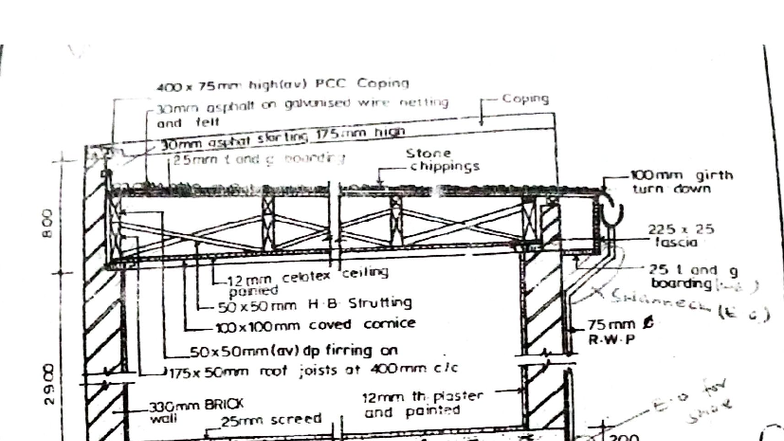 400 x 75mm high(av) PCC Coping
30mm asphalt on galvanised wire netting
and felt
Coping
30mm asphat skirting 175mm high
25mm t and g boarding
Stone
chippings
100mm girth
turn down
800
225 x 25
fascia
12mm celotex ceiling
painted
25 t and g
boarding
Swanneck
50x50mm H·B· Strutting
100x100mm coved cornice
75mm
R·W·P
50x50mm(av) dp firring on
175x50mm roof joists at 400mm c/c
2900
12mm th plaster
and painted
330mm BRICK
wall
25mm screed
for
200